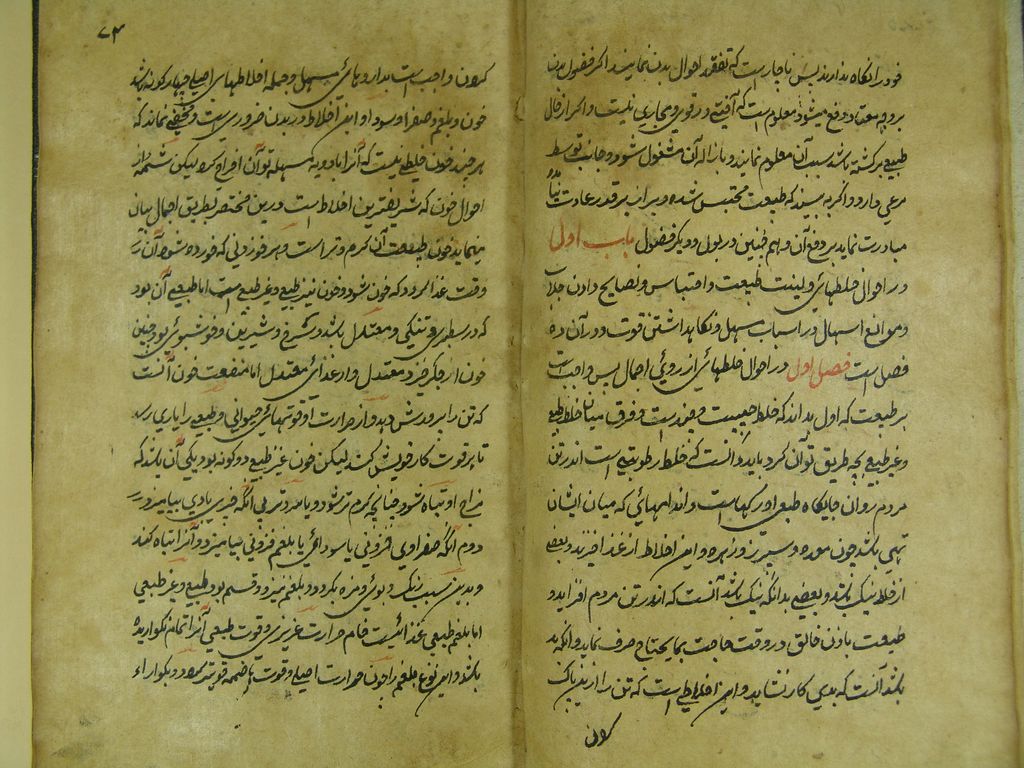 خود را نگاه دارند پس ناچار است که تفقد احوال بدن نمایند اگر فضول بدن
بر وجه معتاد دفع میشود معلوم است که آفتی در قوی و مجاری نیست و اگر از حال
طبیعی برگشته باشد سبب آن معلوم نمایند و بازاله آن مشغول شود و جانب توسط
مرعی دارد و اگر به بیند که طبیعت محتبس شده و بر آن بر قدر عادت
مبادرت نماید بر دفع آن و هم چنین در بول و دیگر فضول باب اول
در احوال خلطهای و لینت طبیعت و احتباس و نصایح دادن جلاب
و موانع اسهال و در اسباب مسهل و نگاهداشتن قوت و در آن ده
فصل است فصل اول در احوال خلطهائی از روئی اجمال پس واجب است
بر طبیب که اول بداند که خلط چیست و چند است و فرق میان خلط طبیعی
و غیر طبیعی بچه طریق توان کرد باید دانست که خلط رطوبتی است اندر تن
مردم روان و جایگاه طبیعی او رگهاست و اندامهائی که میان ایشان
تهی باشد چون معده و سپرز و زهره و این اخلاط از غذا خیزد و بعضی
از خلط نیک باشد و بعضی بد آنکه نیک باشد آنست که اندر تن مردم افزاید و
طبیعت باذن خالق در وقت حاجت بما یحتاج صرف نماید و آنکه بد
باشد آنست که بدین کار نشاید و این اخلاطی است که تن را از آن پاک
کردن
۷۴
کردن واجب است بداروهائی مسهل و جمله خلطهای اصلی چهار گونه باشد
خون و بلغم و صفرا و سودا و این اخلاط در بدن ضروری است و مخفی نماند که
هر چند خون خلطی نیست که آنرا بادویه مسهله توان اخراج کرد لیکن شمه از
احوال خون که شریفترین اخلاط است درین مختصر بطریق اجمال بیان
مینماید خون طبیعت آن گرم و تر است و هر خوردنی که خورده شود آن
وقت غذا گردد که خون شود و خون نیز طبیعی و غیر طبیعی است اما طبیعی آن بود
که در سطبری و تنکی معتدل باشد و سرخ و شیرین و خوشبوئی بود و چنین
خون از جگر خیزد معتدل و از غذائی معتدل اما منفعت خون آنست
که تن را پرورش دهد و از حرارت او قوتهائی حیوانی و طبیعی را یاری رسد
تا بر قوت کار خویش کند لیکن خون غیر طبیعی دو گونه بود یکی آن باشد که
مزاج او تباه شود چنانچه گرم تر شود یا سردتر بی آنکه چیزی بدی بیامیزد
دوم آنکه صفراوی افزونی یا سودائی یا بلغم فزونی بیامیزد و آنرا تباه کند
و بدین سبب رنگ و بوئی و مزه بگردد و بلغم نیز دو قسم بود طبیعی و غیر طبیعی
اما بلغم طبیعی غذائیست خام حرارت غریزی و قوت طبیعی آنرا تمام نگواریده
باشد و این نوع بلغم را چون حرارت اصلی و قوت هاضمه قویتر گردد بگوارد